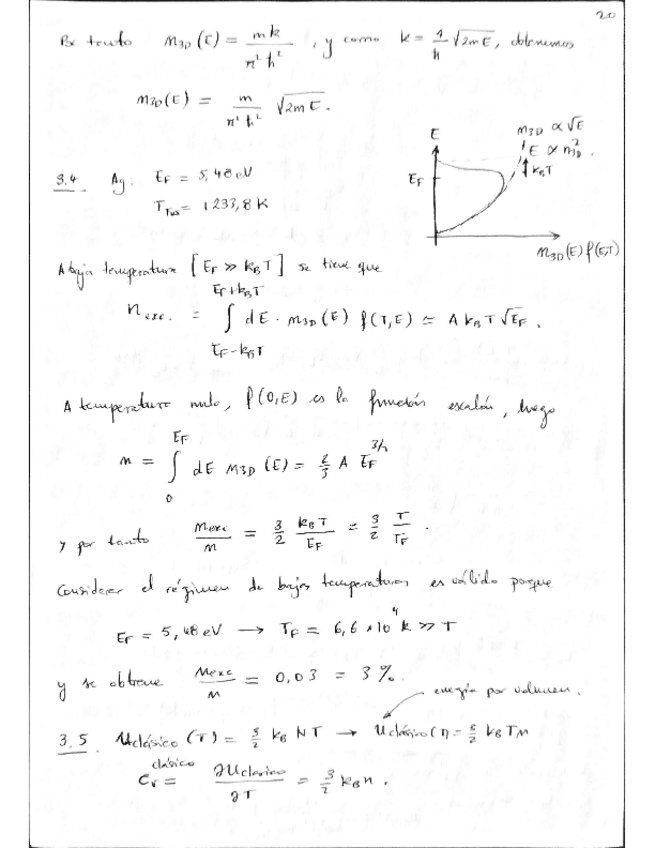 20
Por tanto m3D(E) = mk / π² ħ² , y como k = 1/ħ √2mE, obtenemos
m3D(E) = m / π² ħ² √2mE.
E
m3D ∝ √E
E ∝ m²3D.
kBT
EF
m3D(E) f(E,T)
3.4. Ag: EF = 5,48 eV
TFus = 1233,8 K
A baja temperatura [EF ≫ kBT] se tiene que
nexc. = ∫ EF-kBT EF+kBT dE · m3D(E) f(T,E) ≃ A kBT √EF.
A temperatura nula, f(0,E) es la función escalón, luego
m = ∫ 0 EF dE m3D(E) = 2/3 A EF^3/2
y por tanto mexc / m = 3/2 kBT / EF = 3/2 T / TF.
Considerar el régimen de bajas temperaturas es válido porque
EF = 5,48 eV → TF = 6,6 × 10⁴ K ≫ T
y se obtiene mexc / m = 0,03 = 3%.
energía por volumen.
3.5. Uclásico (T) = 3/2 kB NT → Uclásico (T) = 3/2 kBTn
cv clásico = ∂Uclásico / ∂T = 3/2 kBn.